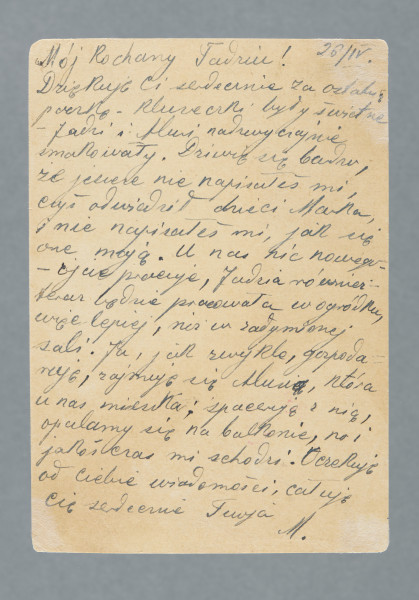 Mój Kochany Tadziu! 26/IV.
Dziękuję Ci serdecznie za ostatnią
paczkę - kluseczki były świetne
- Jadzi i Musi nadzwyczajnie
smakowały. Dziwię się bardzo,
że jeszcze nie napisałeś mi,
czyś odwiedził dzieci Marka,
i nie napisałeś mi, jak się
one mają. U nas nic nowego
- ojciec pracuje, Jadzia również
teraz będzie pracowała w ogródku,
więc lepiej, niż w zadymionej
sali. Ja, jak zwykle, gospoda-
ruję, zajmuję się Musią, która
u nas mieszka; spaceruję z nią,
opalamy się na balkonie, no i
jakoś czas mi schodzi. Oczekuję
od Ciebie wiadomości, całuję
Cię serdecznie Twoja
M.